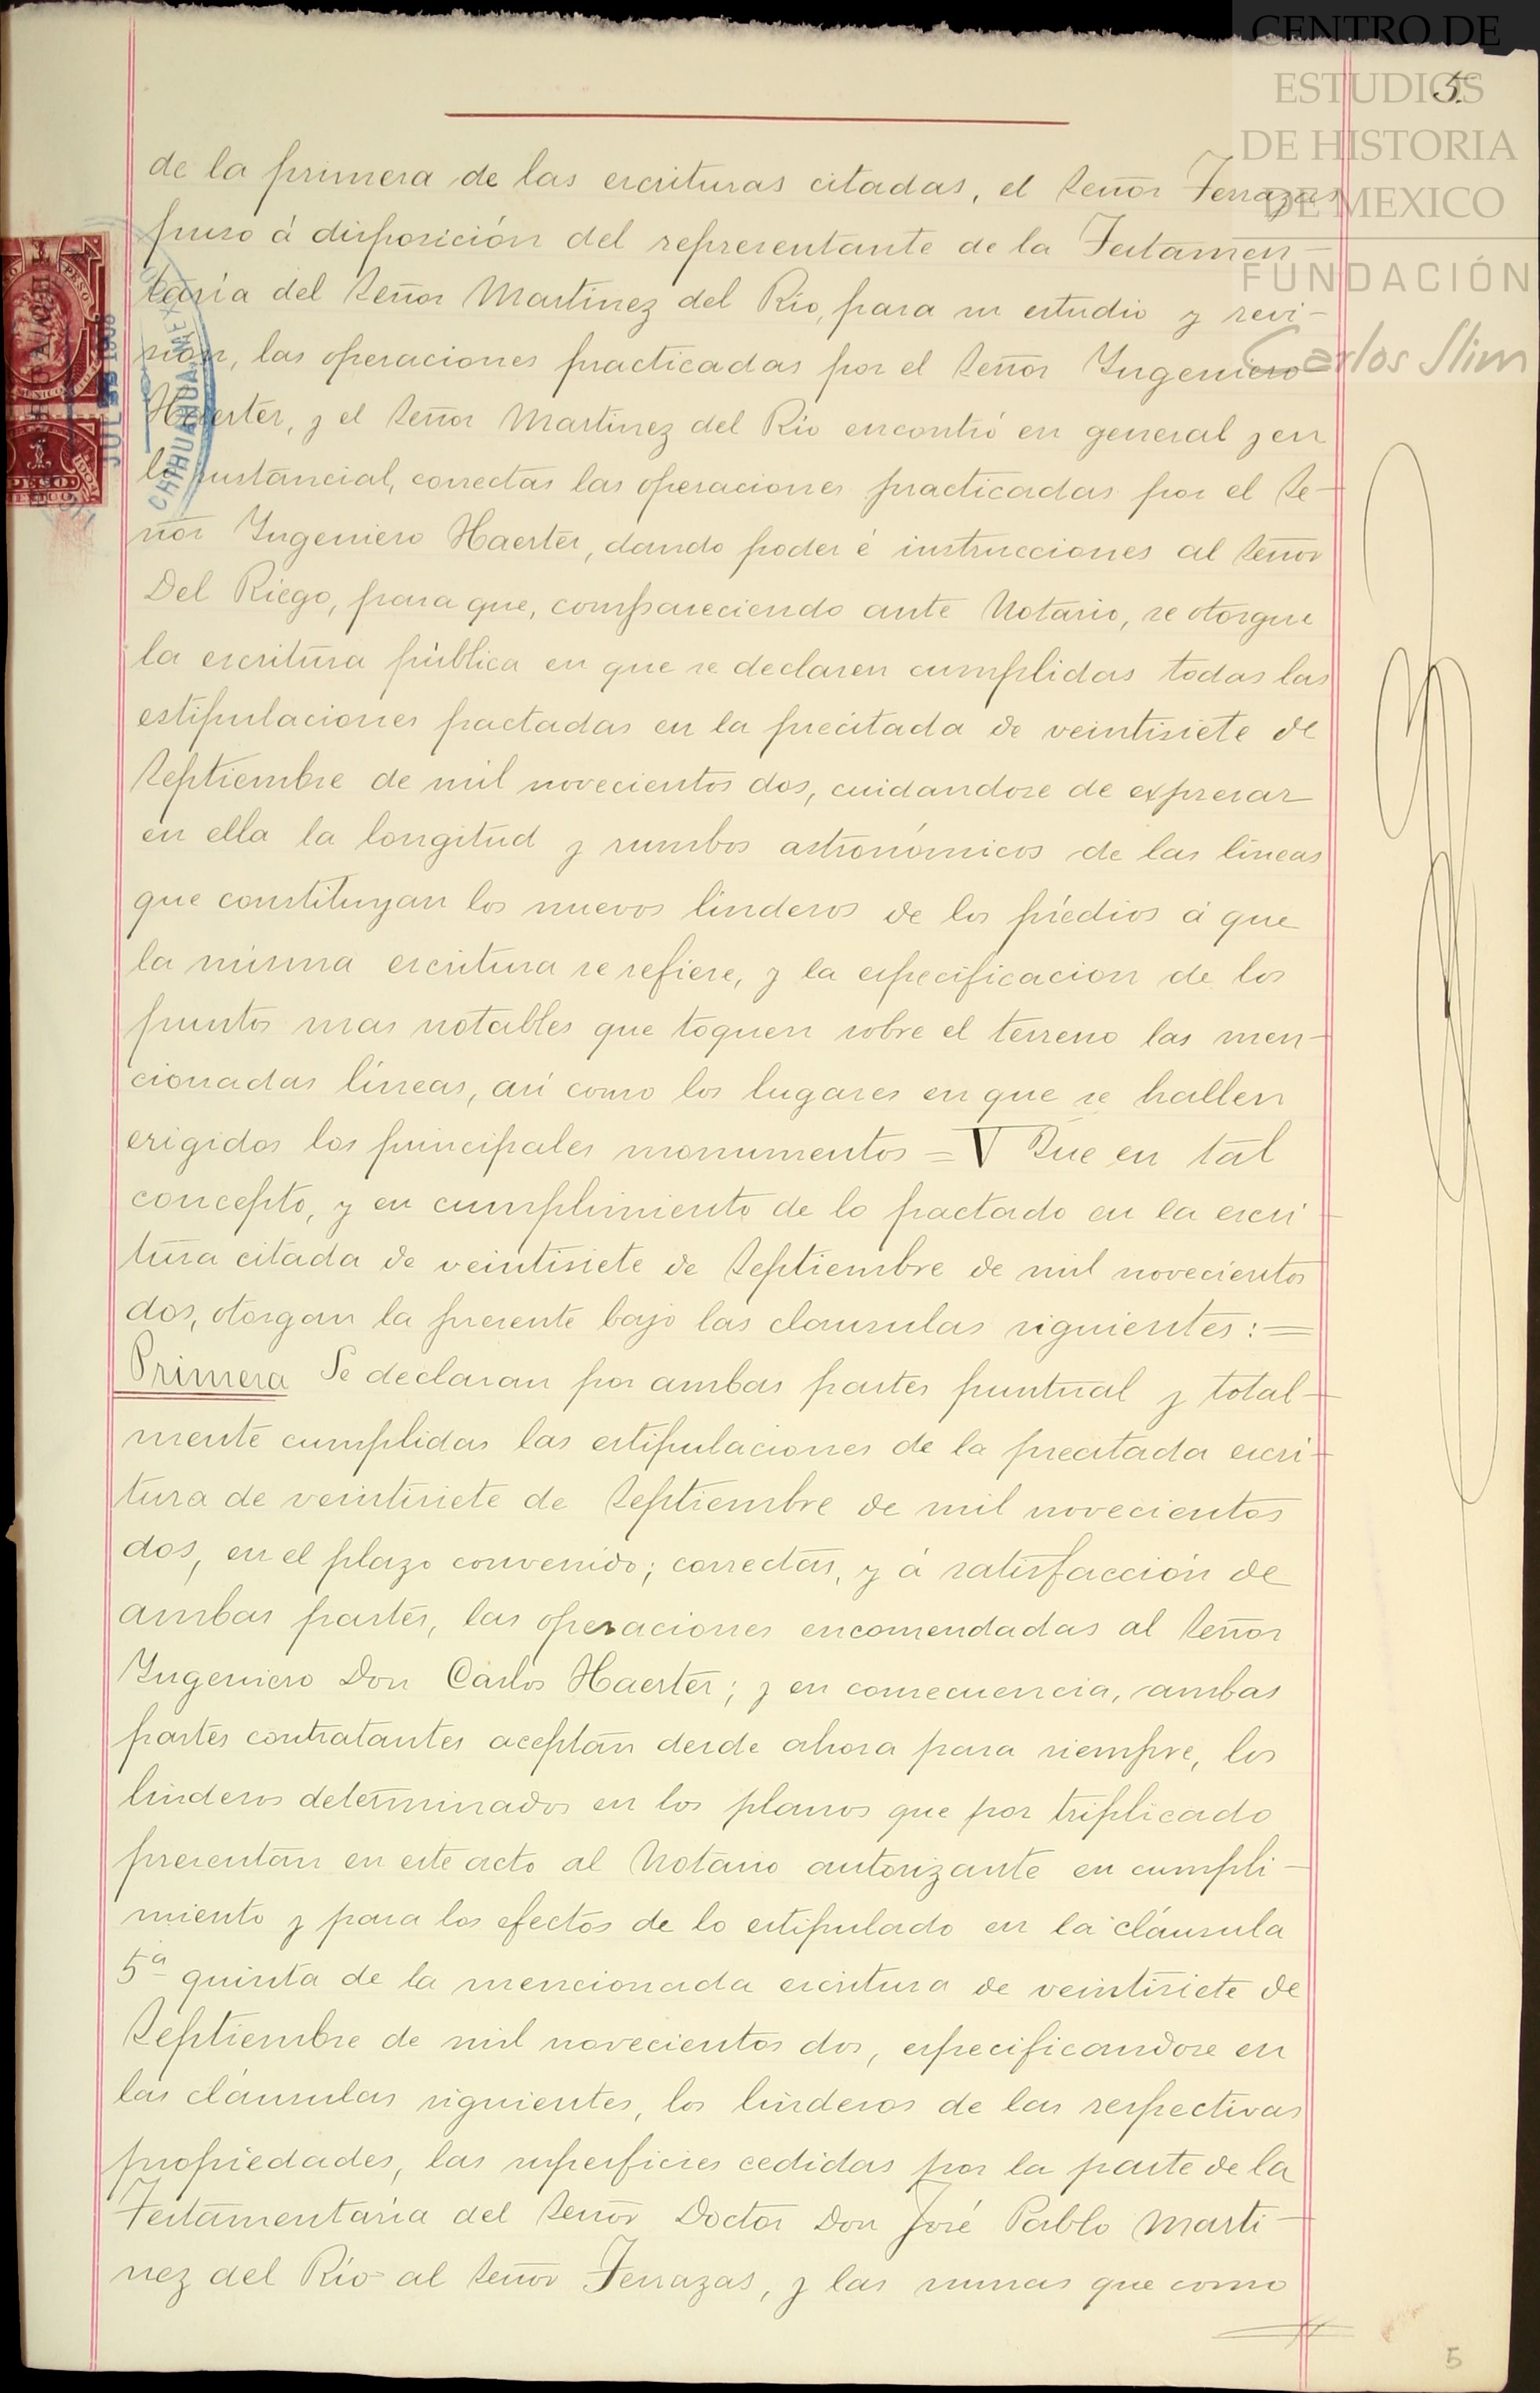 CENTRO DE
ESTUDIOS
DE HISTORIA
DE MEXICO
FUNDACIÓN
Carlos Slim
5.
de la primera de las escrituras citadas, el Señor Terrazas
puso á disposición del representante de la Testamen-
taría del Señor Martinez del Rio, para su estudio y revi-
sión, las operaciones practicadas por el Señor Ingeniero
Haerter, y el Señor Martinez del Rio encontró en general y en
lo sustancial, correctas las operaciones practicadas por el Se-
ñor Ingeniero Haerter, dando poder é instrucciones al Señor
Del Riego, para que, compareciendo ante Notario, se otorgue
la escritura pública en que se declaren cumplidas todas las
estipulaciones pactadas en la precitada de veintisiete de
Septiembre de mil novecientos dos, cuidandose de expresar
en ella la longitud y rumbos astronómicos de las líneas
que constituyan los nuevos linderos de los prédios á que
la misma escritura se refiere, y la especificacion de los
puntos mas notables que toquen sobre el terreno las men-
cionadas líneas, así como los lugares en que se hallen
erigidos los principales monumentos = V Que en tal
concepto, y en cumplimiento de lo pactado en la escri-
tura citada de veintisiete de Septiembre de mil novecientos
dos, otorgan la presente bajo las clausulas siguientes: =
Primera Se declaran por ambas partes puntual y total-
mente cumplidas las estipulaciones de la precitada escri-
tura de veintisiete de Septiembre de mil novecientos
dos, en el plazo convenido; correctas, y á satisfacción de
ambas partes, las operaciones encomendadas al Señor
Ingeniero Don Carlos Haerter; y en consecuencia, ambas
partes contratantes aceptan desde ahora para siempre, los
linderos determinados en los planos que por triplicado
presentan en este acto al Notario autorizante en cumpli-
miento y para los efectos de lo estipulado en la cláusula
5ª quinta de la mencionada escritura de veintisiete de
Septiembre de mil novecientos dos, especificandose en
las cláusulas siguientes, los linderos de las respectivas
propiedades, las superficies cedidas por la parte de la
Testamentaría del Señor Doctor Don José Pablo Marti-
nez del Río al Señor Terrazas, y las sumas que como
5
CHIHUAHUA, MEX
PESO